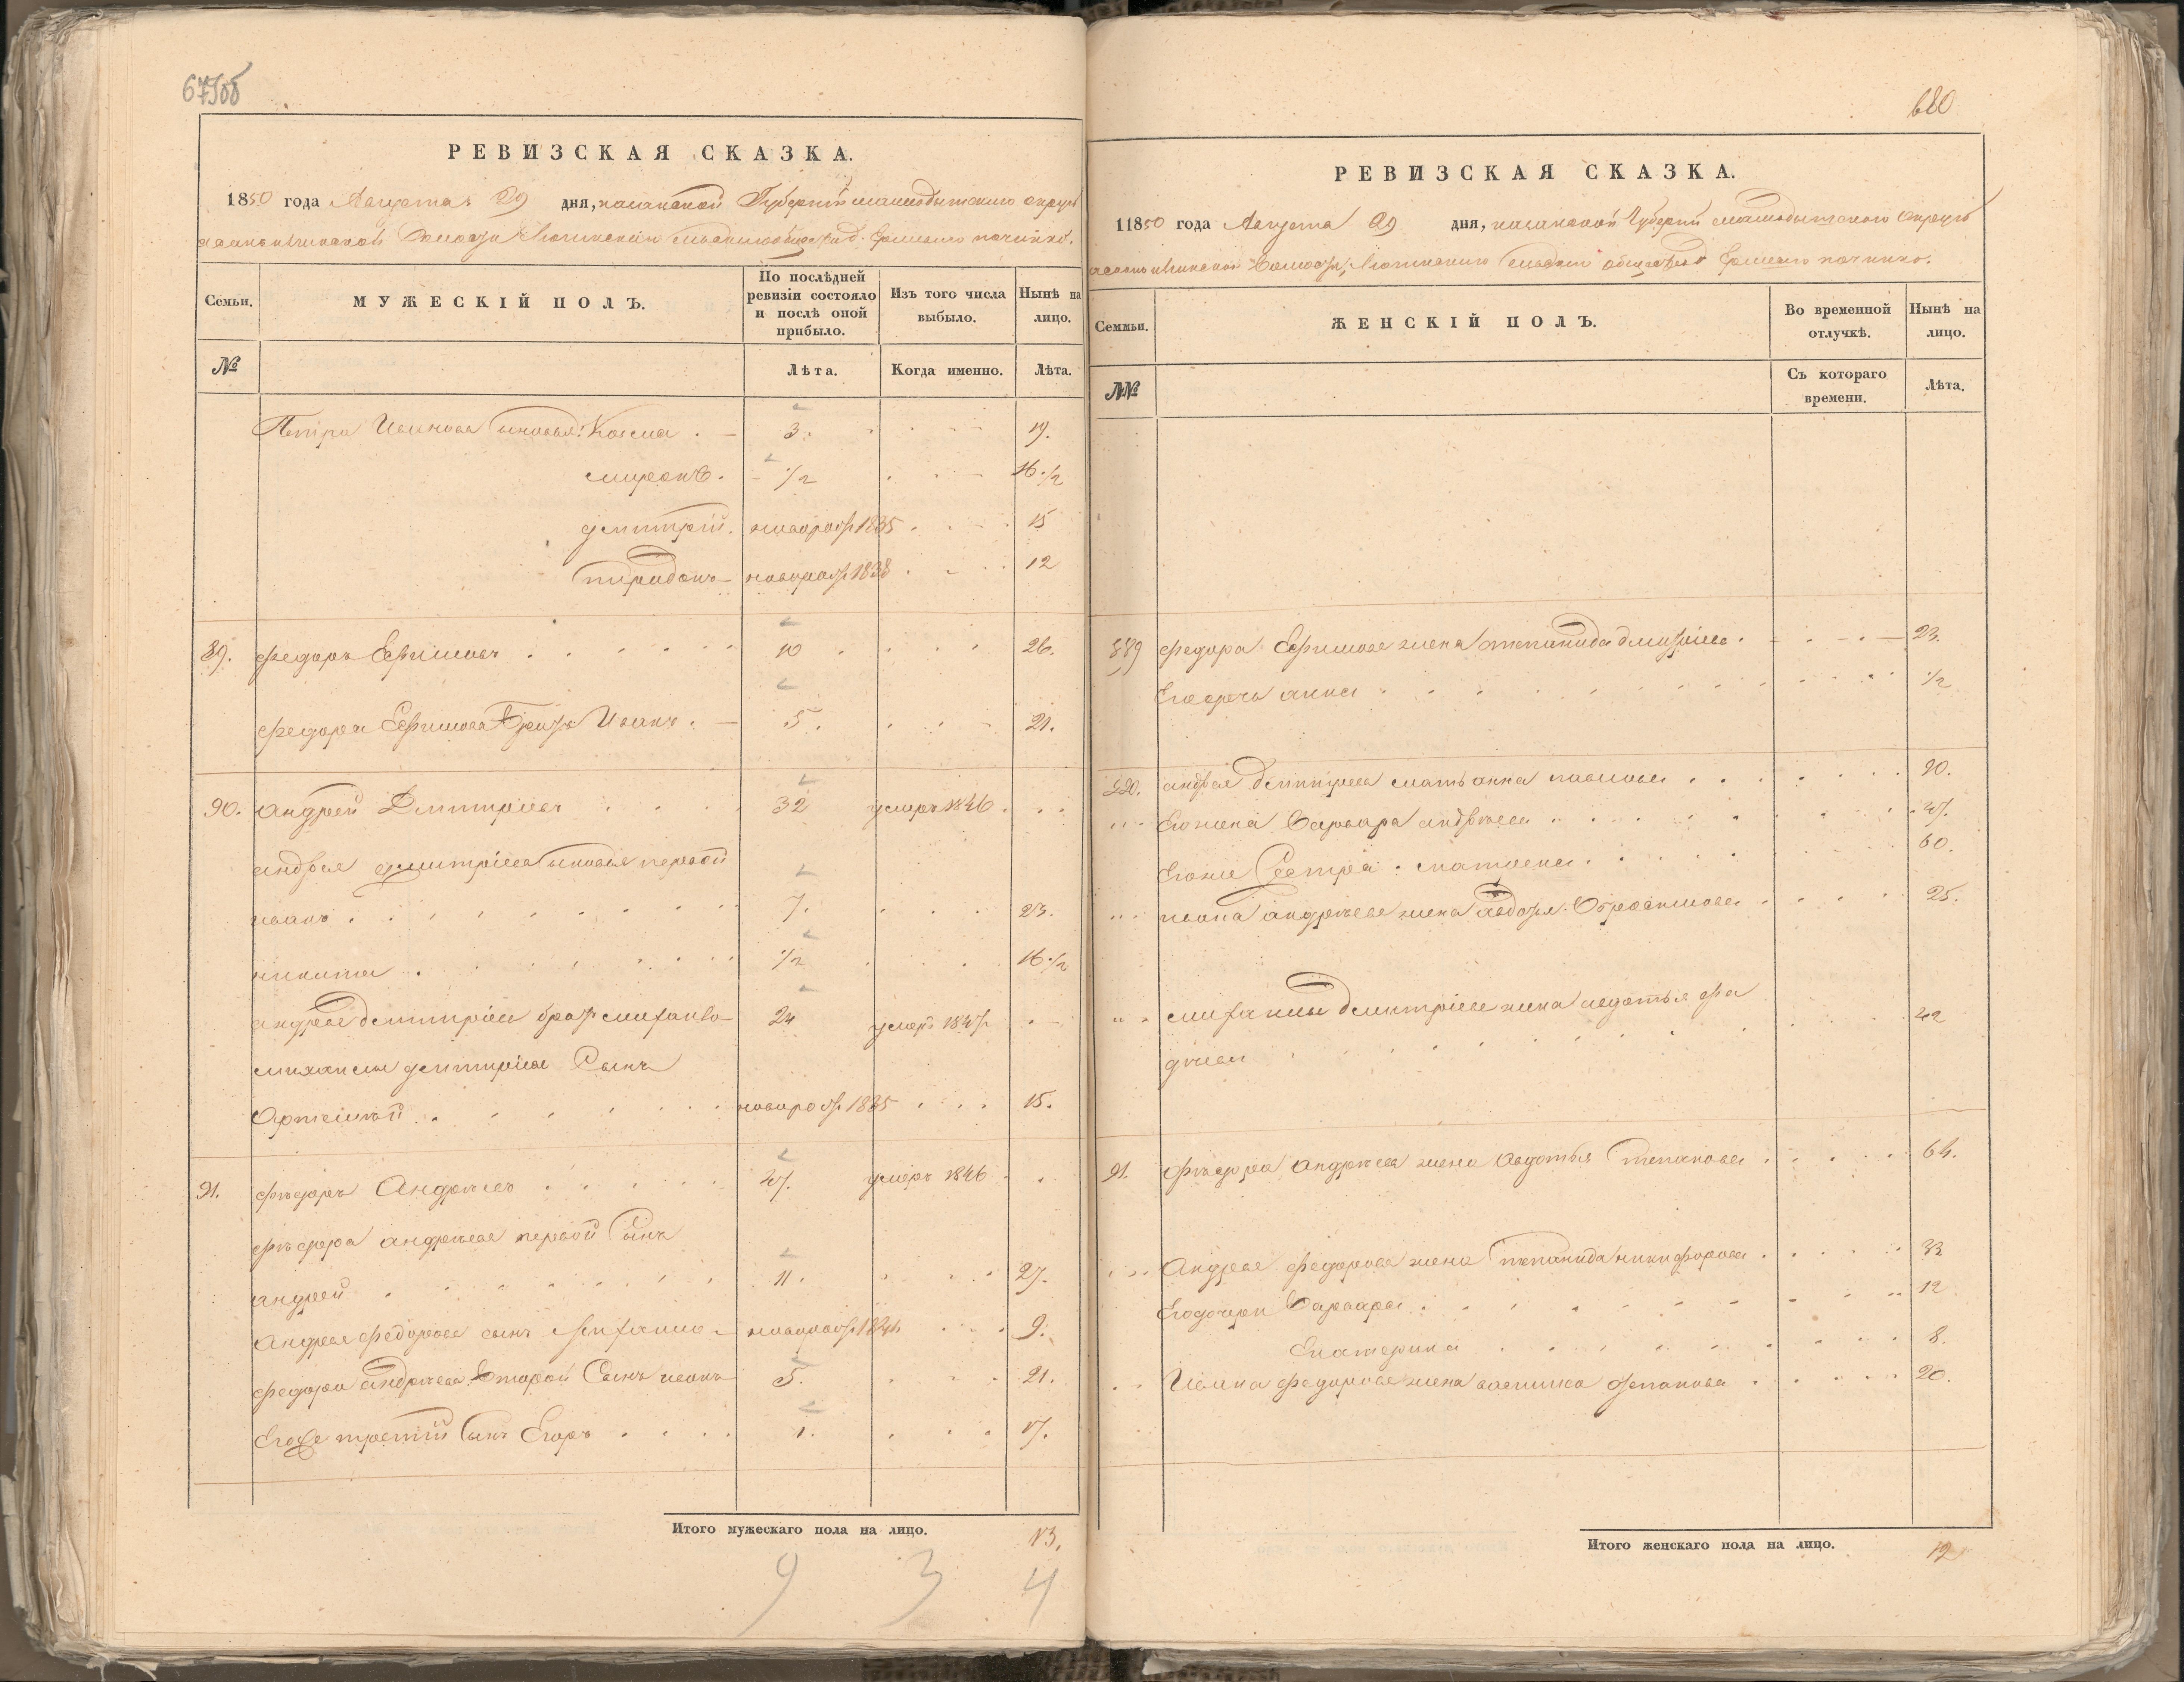 679об
РЕВИЗСКАЯ СКАЗКА.
1850 года Августа 29 дня, казанской Губерніи мамадышскаго округа
волости починка.
Семьи.
МУЖЕСКІЙ ПОЛЪ.
По послѣдней ревизіи состояло и послѣ оной прибыло.
Изъ того числа выбыло.
Нынѣ на лицо.
№
Лѣта.
Когда именно.
Лѣта.
Петра Иванова сыновья: Козма 3. 19.
миронъ. 1/2 16 1/2
дмитрій. новорож 1835 15
спиридонъ новорож 1838 12
89. федоръ Ефимовъ 10 26.
федора Ефимова братъ Иванъ. 5. 21.
90. андрей Дмитріевъ 32 умеръ 1846
андрея дмитріева сыновья первой
иванъ 7. 23.
никита 1/2 16 1/2
андрея дмитріева братъ михаило 24 умеръ 1847
михаила дмитріева Сынъ
Артемій новорож 1835 15.
91. федоръ Андреевъ 47. умеръ 1846
федора андреева первой сынъ
андрей 11. 27.
Андрея федорова сынъ новорож 1841 9.
федора андреева второй Сынъ иванъ 5. 21.
Егоже третій сынъ Егоръ 1. 17.
Итого мужескаго пола на лицо. 13.
9 3 4
680
РЕВИЗСКАЯ СКАЗКА.
11850 года Августа 29 дня, казанской Губерніи мамадышскаго округа
волости, сельскаго общества починка.
Семьи.
ЖЕНСКІЙ ПОЛЪ.
Во временной отлучкѣ.
Нынѣ на лицо.
№№
Съ котораго времени.
Лѣта.
889 федора Ефимова жена степанида 23.
Его дочь анна 1/2
андрея дмитріева мать анна 90.
Его жена Варвара андреева 47.
Егоже Сестра матрена 60.
ивана андреева жена авдотья 25.
михаилы дмитріева жена авдотья фа
дѣева 42
91. федора андреева жена Авдотья степанова 64.
Андрея федорова жена степанида никифорова 33
Его дочери Варвара 12
Екатерина 8.
Ивана федорова жена степанова 20.
Итого женскаго пола на лицо. 12